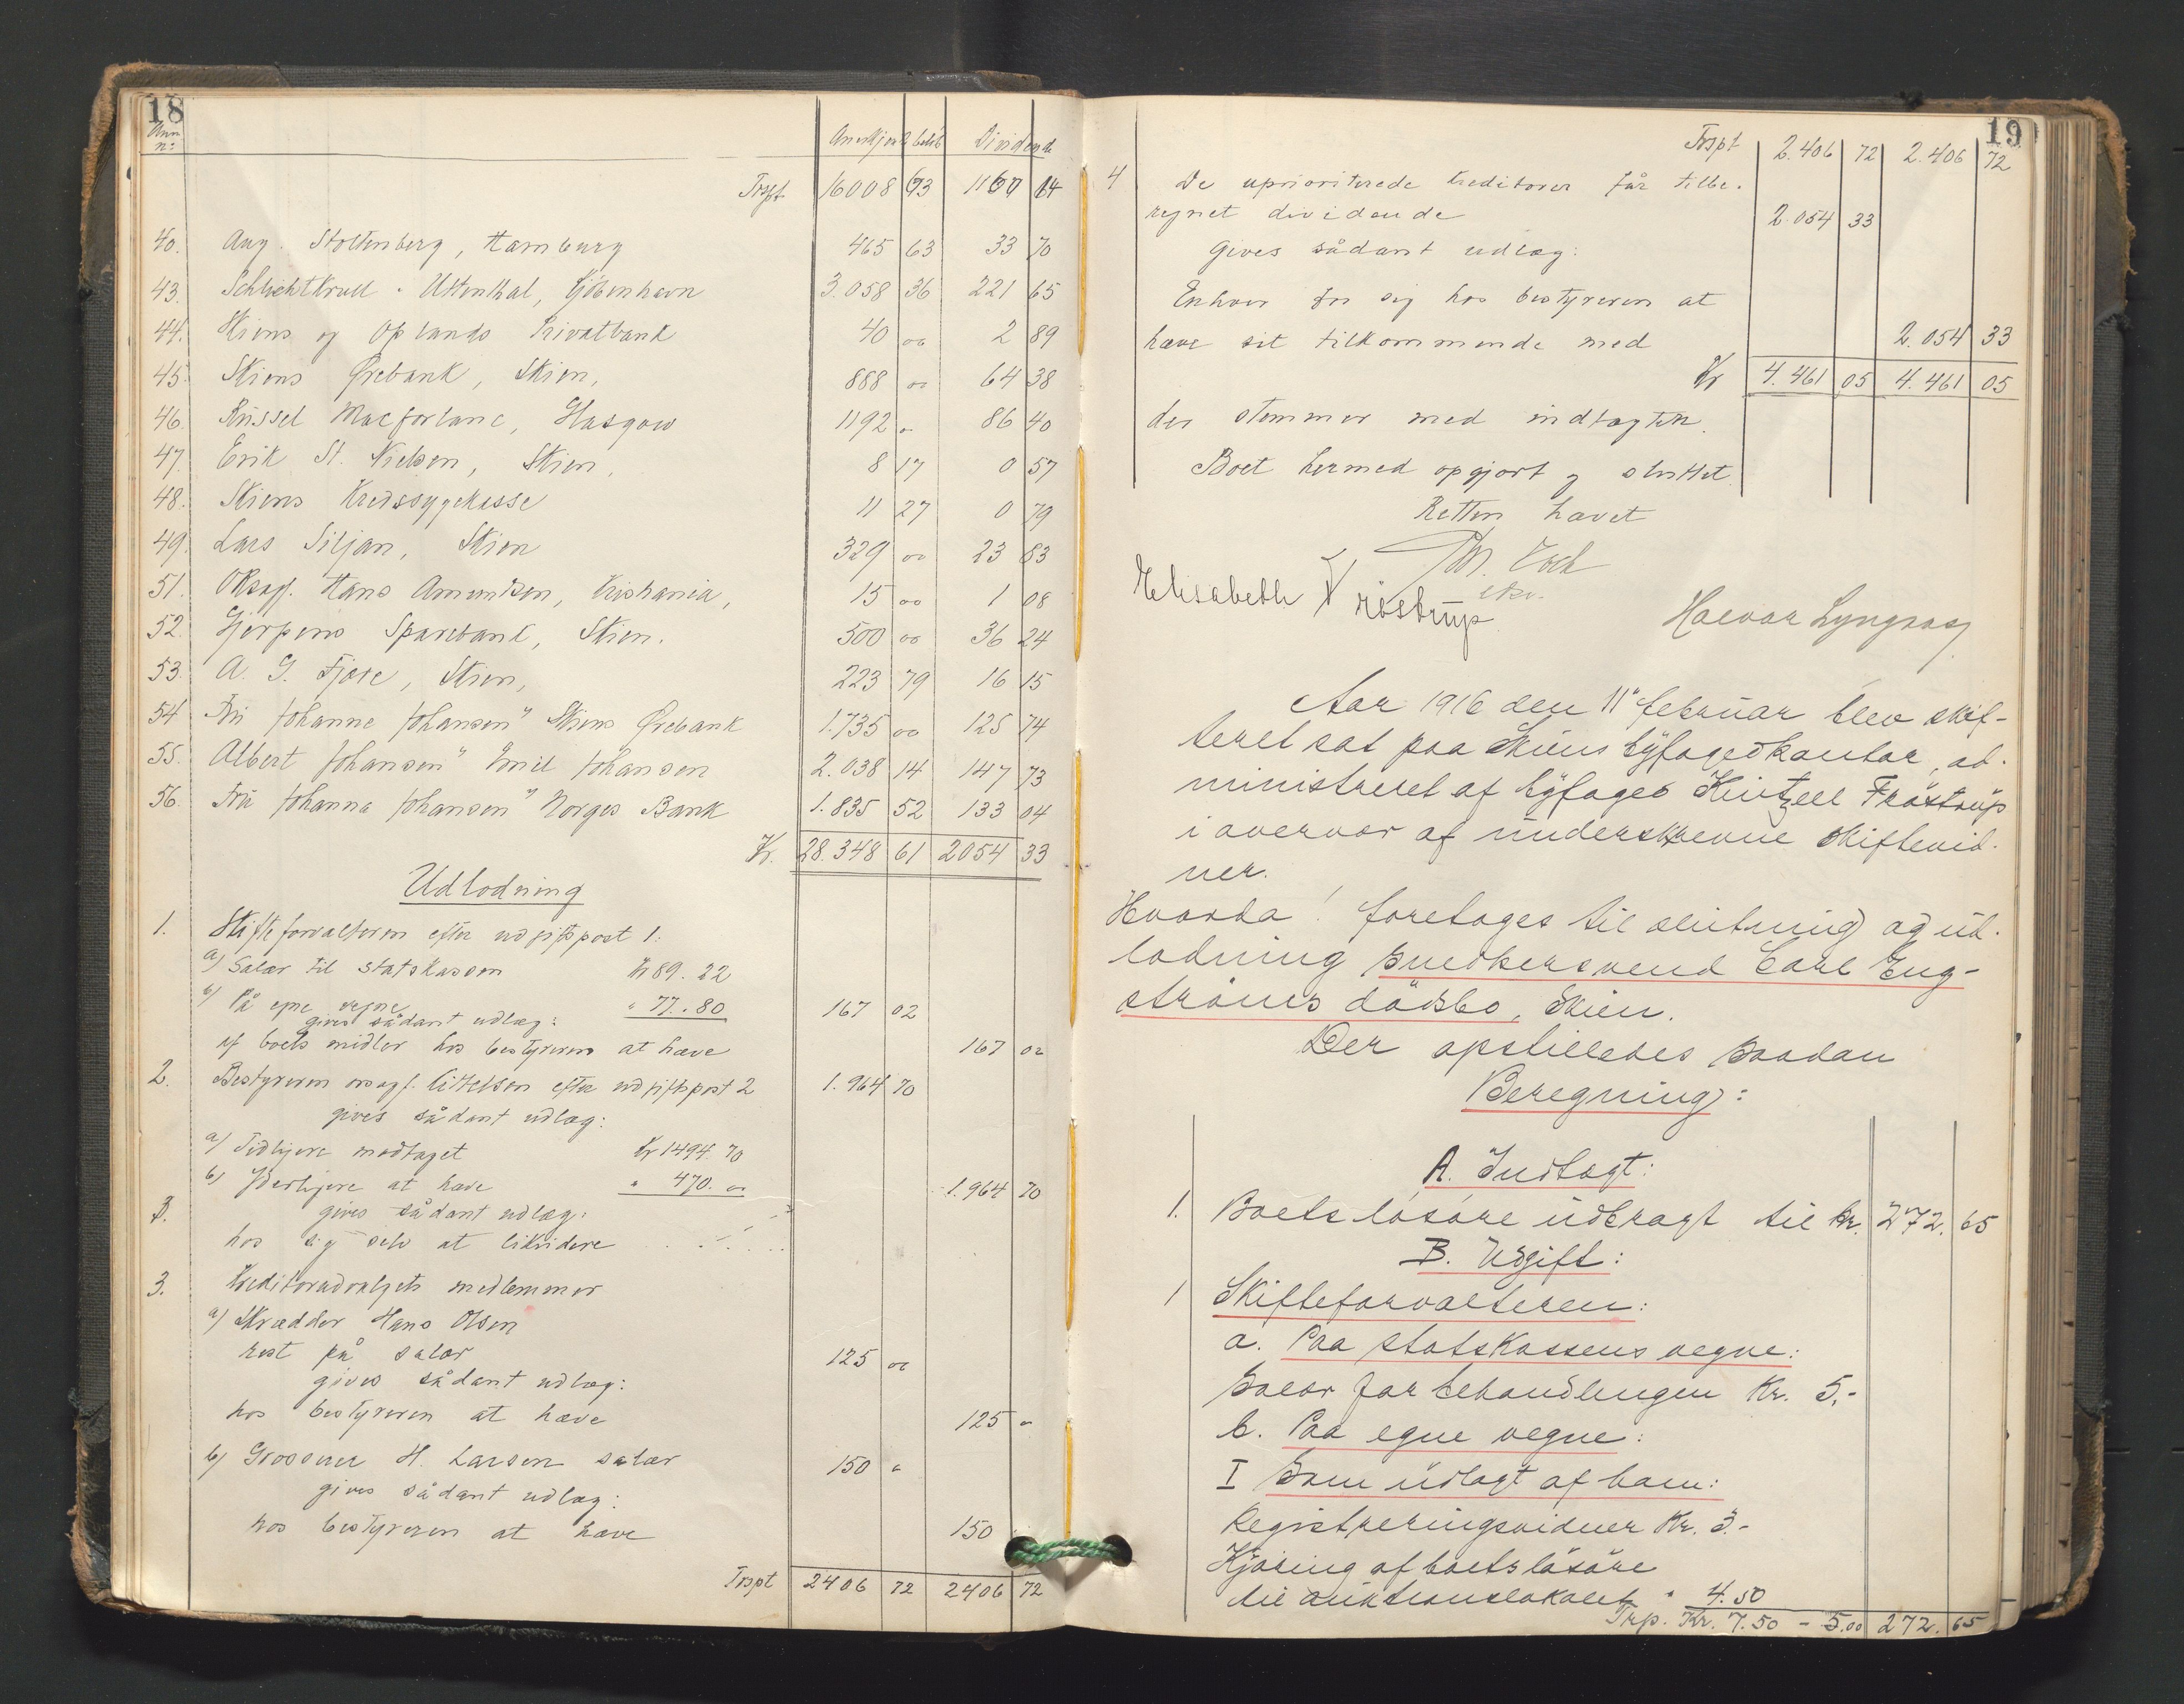 18
Anm n:
Anerkjent beløb Dividende
Trspt 16008 93 1160 14
40. Aug. Stoltenberg, Hamburg 465 63 33 70
43. Schlichtkrull Uttenthal, Kjöbenhavn 3.058 36 221 65
44. Skiens og Oplands Privatbank 40 00 2 89
45. Skiens Ørebank, Skien, 888 00 64 38
46. Russel Macforlane, Glasgow 1192 " 86 40
47. Erik St. Nielsen, Skien, 8 17 0 57
48. Skiens Kredssygekasse 11 27 0 79
49. Lars Siljan, Skien 329 00 23 83
51. ORsagf. Hans Amundsen, Kristiania, 15 00 1 08
52. Gjerpens Sparebank, Skien. 500 00 36 24
53. A. G. Fjære, Skien, 223 79 16 15
54 Fru Johanne Johansen " Skiens Ørebank 1.735 00 125 74
55. Albert Johansen " Emil Johansen 2.038 14 147 73
56. Fru Johanna Johansen " Norges Bank 1.835 52 133 04
Kr. 28.348 61 2054 33
Udlodning
1. Skifteforvalteren efter udgiftspost 1:
a) Salær til statskassen Kr 89. 22
b) På egne vegne " 77. 80 167 02
gives sådant udlæg:
af boets midler hos bestyreren at hæve 167 02
2. Bestyreren orsagf. Cittelsen efter udgiftspost 2 1.964 70
gives sådant udlæg:
a) Tidligere modtaget Kr 1494. 70
b) Yderligere at hæve " 470. 00 1.964 70
gives sådant udlæg:
hos sig selv at likvidere
3. Kreditorudvalgets medlemmer
a) Skrædder Hans Olsen
rest på salær 125 00
gives sådant udlæg:
hos bestyreren at hæve 125 "
b) Grosserer H. Larsen salær 150 "
gives sådant udlæg:
hos bestyreren at hæve 150
Trspt 2406 72 2406 72
19
Trspt 2.406 72 2.406 72
4 De uprioriterede kreditorer får tilbe-
regnet dividende 2.054 33
gives sådant udlæg:
Enhver for sig hos bestyreren at
hæve sit tilkommende med 2.054 33
Kr 4.461 05 4.461 05
der stemmer med indtægten.
Boet hermed opgjort og sluttet.
Retten hævet
Elisabeth Fröstrup Halvor Lyngaas
Aar 1916 den 11' februar blev skif-
teret sat paa Skiens byfogedkontor, ad-
ministreret af byfoged Kintzell Fröstrup
i overvær af underskrevne skiftevid-
ner.
Hvorda! foretoges til slutning og ud-
lodning snedkersvend Carl Eng-
ströms dödsbo, Skien.
Der opstilledes saadan
Beregning:
A. Indtægt:
1. Boets lösöre udbragt til kr. 272. 65
B. Udgift:
1 Skifteforvalteren:
a. Paa statskassens vegne:
Salær for behandlingen Kr. 5,-
b. Paa egne vegne:
I Som udlagt af ham:
Registreringsvidner Kr. 3.-
Kjöring af boets lösöre
til auktionslokalet " 4.50
Trp. Kr. 7.50 - 5.00 272. 65